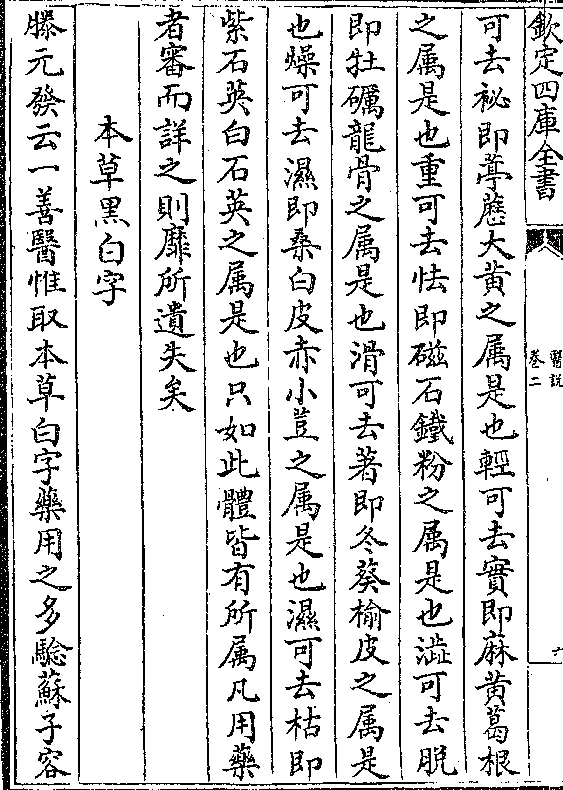 欽定四庫全書
醫説
卷二
十
可去祕即葶藶大黄之属是也輕可去實即麻黄葛根
之属是也重可去怯即磁石鐵粉之属是也澁可去脫
即牡礪龍骨之属是也滑可去著即冬葵榆皮之属是
也燥可去濕即桑白皮赤小豆之属是也濕可去枯即
紫石英白石英之属是也只如此體皆有所属凡用藥
者審而詳之則靡所遺失矣
本草黑白字
滕元發云一善醫惟取本草白字藥用之多驗蘇子容